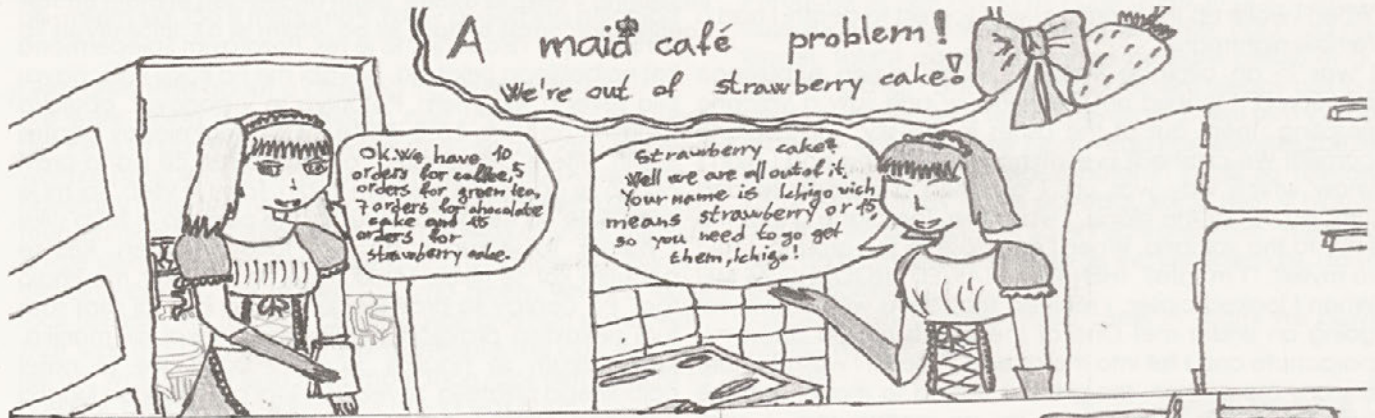 A maid café problem!
We're out of strawberry cake!
Ok. We have 10
orders for coffee, 5
orders for green tea,
7 orders for chocolate
cake and 15
orders for
strawberry cake.
Strawberry cake?
Well we are all out of it.
Your name is Ichigo vich
means strawberry or 15,
so you need to go get
them, Ichigo!